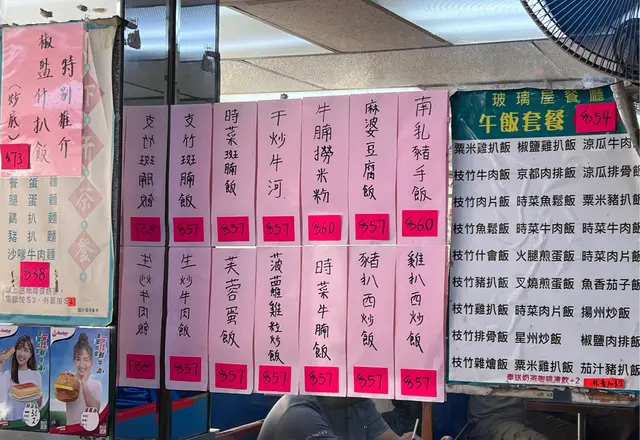 特別推介
椒鹽什扒飯
(炒底)
$73
下午茶餐
餐蛋麵
腿蛋麵
鷄扒麵
豬扒麵
沙嗲牛肉麵
$38
南乳豬手飯
$60
麻婆豆腐飯
$57
牛腩撈米粉
$60
干炒牛河
$57
時菜斑腩飯
$57
支竹斑腩飯
$57
雞扒西炒飯
$57
豬扒西炒飯
$57
時菜牛腩飯
$57
菠蘿雞粒炒飯
$57
芙蓉蛋飯
$57
生炒牛肉飯
$57
玻璃屋餐廳
午飯套餐 $54
粟米雞扒飯 椒鹽雞扒飯 涼瓜牛肉
枝竹牛肉飯 京都肉排飯 涼瓜排骨飯
枝竹肉片飯 時菜魚鬆飯 粟米豬扒飯
枝竹魚鬆飯 時菜牛肉飯 時菜牛肉
枝竹什會飯 火腿煎蛋飯 時菜肉片飯
枝竹豬扒飯 叉燒煎蛋飯 魚香茄子飯
枝竹雞扒飯 時菜肉片飯 揚州炒飯
枝竹排骨飯 星州炒飯 椒鹽肉排飯
枝竹雜燴飯 粟米雞扒飯 茄汁豬扒飯
奉送奶茶咖啡凍飲+2